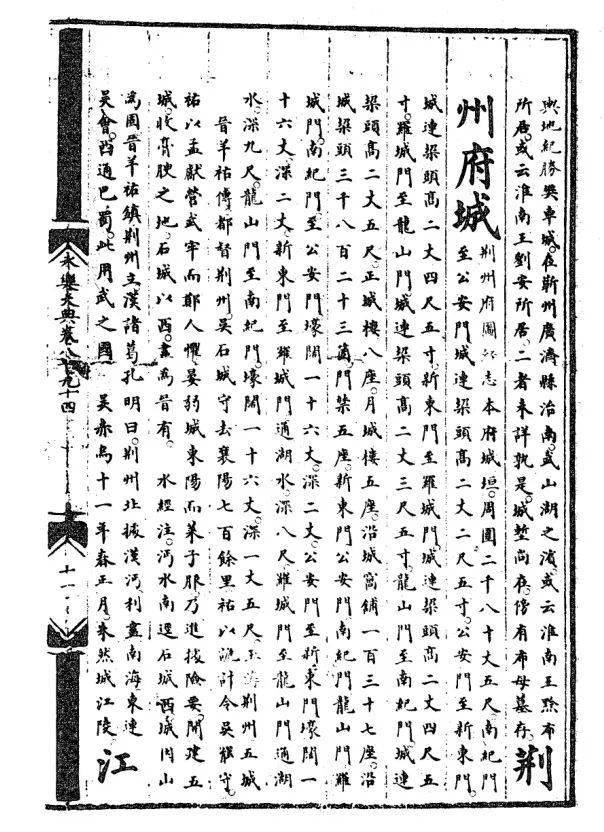 輿地紀勝樊車城在蘄州廣濟縣治南或山湖之濱或云淮南王黥布
所居或云淮南王劉安所居二者未詳孰是城塹尚存傍有布母墓存荆
州府城荆州府圖志本府城垣周圍二千八十丈五尺南紀門
至公安門城連梁頭高二丈二尺五寸公安門至新東門
城連梁頭高二丈四尺五寸新東門至羅城門城連梁頭高二丈四尺五
寸羅城門至龍山門城連梁頭高二丈三尺五寸龍山門至南紀門城連
梁頭高二丈五尺正城樓八座月城樓五座沿城窩鋪一百三十七座沿
城梁頭三千八百二十三箇門禁五座新東門公安門南紀門龍山門羅
城門南紀門至公安門壕闊一十六丈深二丈公安門至新東門壕闊一
十六丈深二丈新東門至羅城門通湖水深八尺羅城門至龍山門通湖
水深九尺龍山門至南紀門壕闊一十六丈深一丈五尺玉海荆州五城
晉羊祜傳都督荆州吳石城守去襄陽七百餘里祜以詭計令吳罷守
祜以孟獻營武牢而鄭人懼晏弱城東陽而萊子服乃進據險要開建五
城收膏腴之地石城以西盡為晉有 水經注沔水南逕石城西城因山
為固晉羊祜鎮荆州立漢諸葛孔明曰荆州北據漢沔利盡南海東連
吳會西通巴蜀此用武之國 吳赤烏十一年春正月朱然城江陵江
永樂大典卷八千九十四
十一